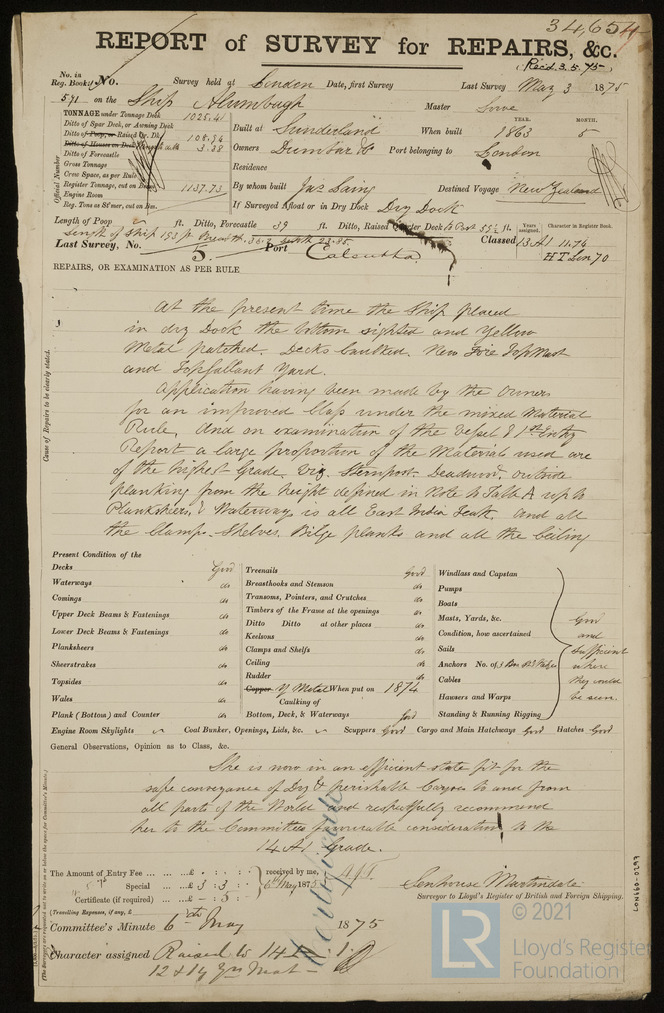 34,654
REPORT of SURVEY for REPAIRS, &c.
(Rec'd 3.5.75)
No. in Reg. Book. No. Survey held at London Date, first Survey Last Survey May 3 1875
571 on the Ship Alumbagh Master
TONNAGE under Tonnage Deck 1025.41
Ditto of Spar Deck, or Awning Deck
Ditto of Poop, or Raised Qr. Dk. 108.94
Ditto of Houses on Deck 3.38
Ditto of Forecastle
Gross Tonnage
Cross Space, as per Rule
Register Tonnage, cut on Beam 1137.73
Engine Room
Reg. Tons as St'mer, cut on Bm.
Official Number
Built at Sunderland When built YEAR. 1863 MONTH. 5
Owners Dunbar & Port belonging to London
Residence
By whom built Jas Laing Destined Voyage New Zealand
If Surveyed Afloat or in Dry Dock Dry Dock
Length of Poop ft. Ditto, Forecastle 39 ft. Ditto, Raised Quarter Deck to Post 55½ ft.
Length of Ship 193 ft. Breadth 36. Depth 23.35
Last Survey, No. 5 Port Calcutta Classed Years assigned. 13 A1 Character in Register Book. 11.74
H T Lon 70
REPAIRS, OR EXAMINATION AS PER RULE
Cause of Repairs to be clearly stated.
At the present time the Ship placed
in dry Dock the bottom sighted and Yellow
Metal patched. Decks Caulked. New Fore TopMast
and TopGallant Yard.
Application having been made by the Owners
for an improved Class under the mixed Material
Rule, And on examination of the Vessel & 1st Entry
Report a large proportion of the Materials used are
of the highest Grade. Viz. Sternpost. Deadwood. outside
planking from the height defined in Note to Table A up to
Planksheers, & Waterways is all East India Teak. and all
the Clamps. Shelves. Bilge planks and all the Ceiling
Present Condition of the
Decks Good
Waterways do
Comings do
Upper Deck Beams & Fastenings do
Lower Deck Beams & Fastenings do
Planksheers do
Sheerstrakes do
Topsides do
Wales do
Plank (Bottom) and Counter do
Treenails Good
Breasthooks and Stemson do
Transoms, Pointers, and Crutches do
Timbers of the Frame at the openings do
Ditto Ditto at other places do
Keelsons do
Clamps and Shelfs do
Ceiling do
Rudder do
Copper Y Metal When put on 1874
Caulking of
Bottom, Deck, & Waterways Good
Windlass and Capstan
Pumps
Boats
Masts, Yards, &c.
Condition, how ascertained
Sails
Anchors No. of 3 Bow
Cables
Hawsers and Warps
Standing & Running Rigging
Good and Sufficient where they could be seen.
Engine Room Skylights Coal Bunker, Openings, Lids, &c. Scuppers Good Cargo and Main Hatchways Good Hatches Good
General Observations, Opinion as to Class, &c.
She is now in an efficient state fit for the
safe conveyance of Dry & perishable Cargoes to and from
all parts of the World and respectfully recommend
her to the Committees favourable consideration to the
14 A1 Grade.
The Amount of Entry Fee ... ... £ : :
Special ... ... £ 3 : 3 : received by me,
Certificate (if required) ... £ : 5 : 6th May 1875
(Travelling Expenses, if any, £
Senhouse Martindale
Surveyor to Lloyd's Register of British and Foreign Shipping.
Committee's Minute 6th May 1875
Character assigned Raised to 14
12 & 14 Yrs Mat
Certificate
LON660-0297
© 2021
LR
Lloyd's Register Foundation